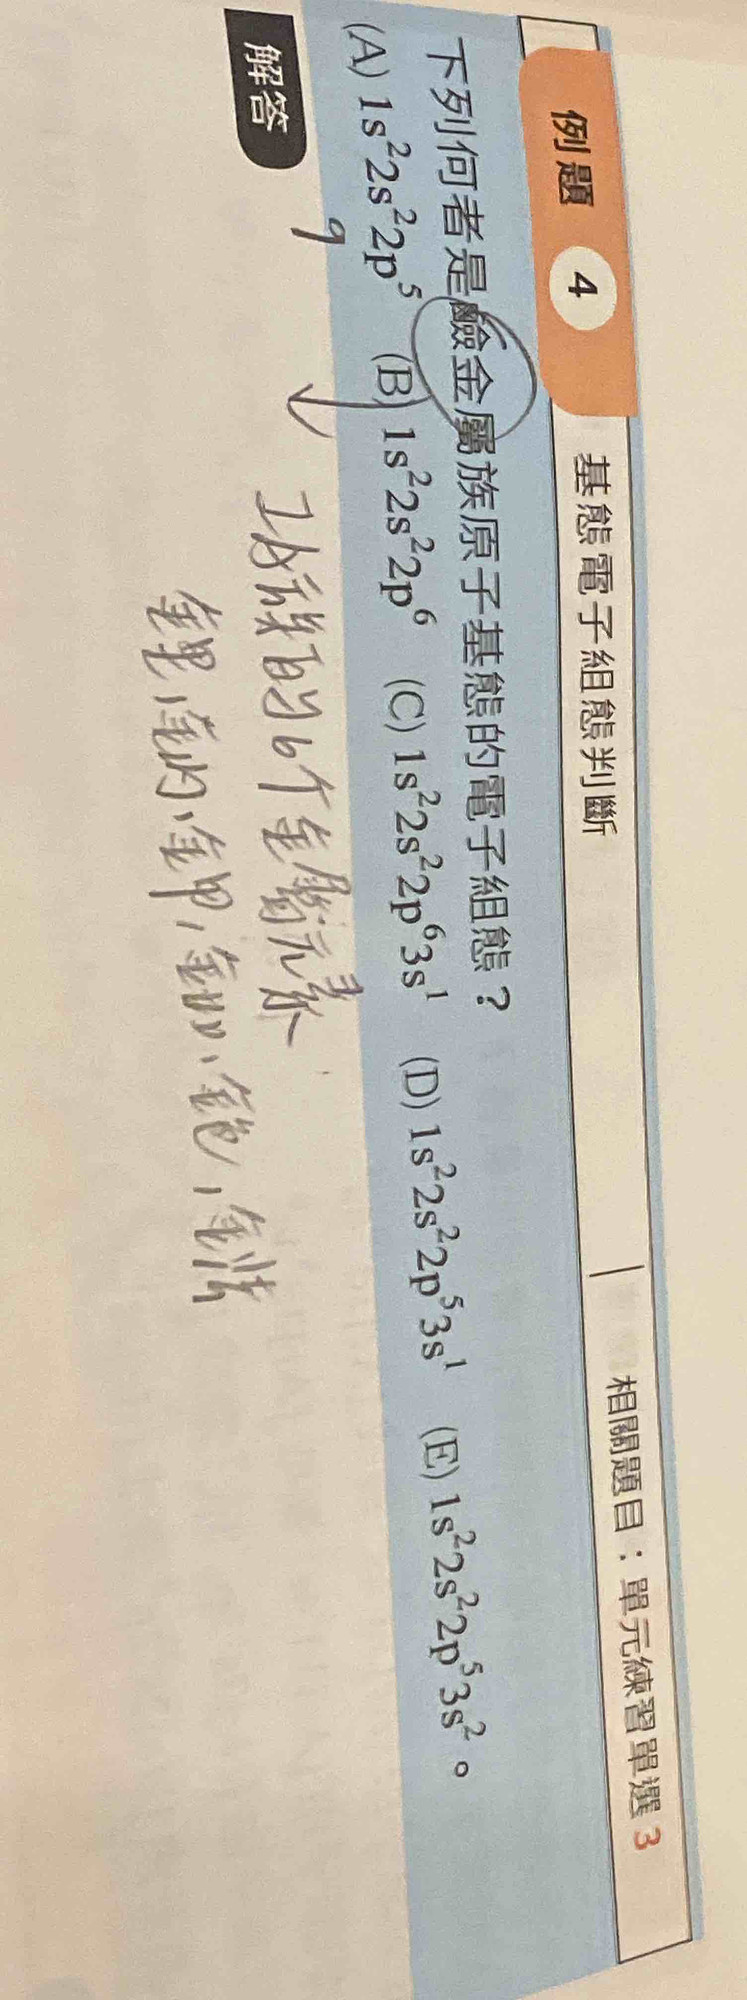 例題 4 基態電子組態判斷 相關題目：單元練習單選 3
下列何者是鹼金屬族原子基態的電子組態？
(A) 1s²2s²2p⁵ (B) 1s²2s²2p⁶ (C) 1s²2s²2p⁶3s¹ (D) 1s²2s²2p⁵3s¹ (E) 1s²2s²2p⁵3s²。
9
解答
IA族的6个金屬元素
鋰、鈉、鉀、銣、銫、鍅